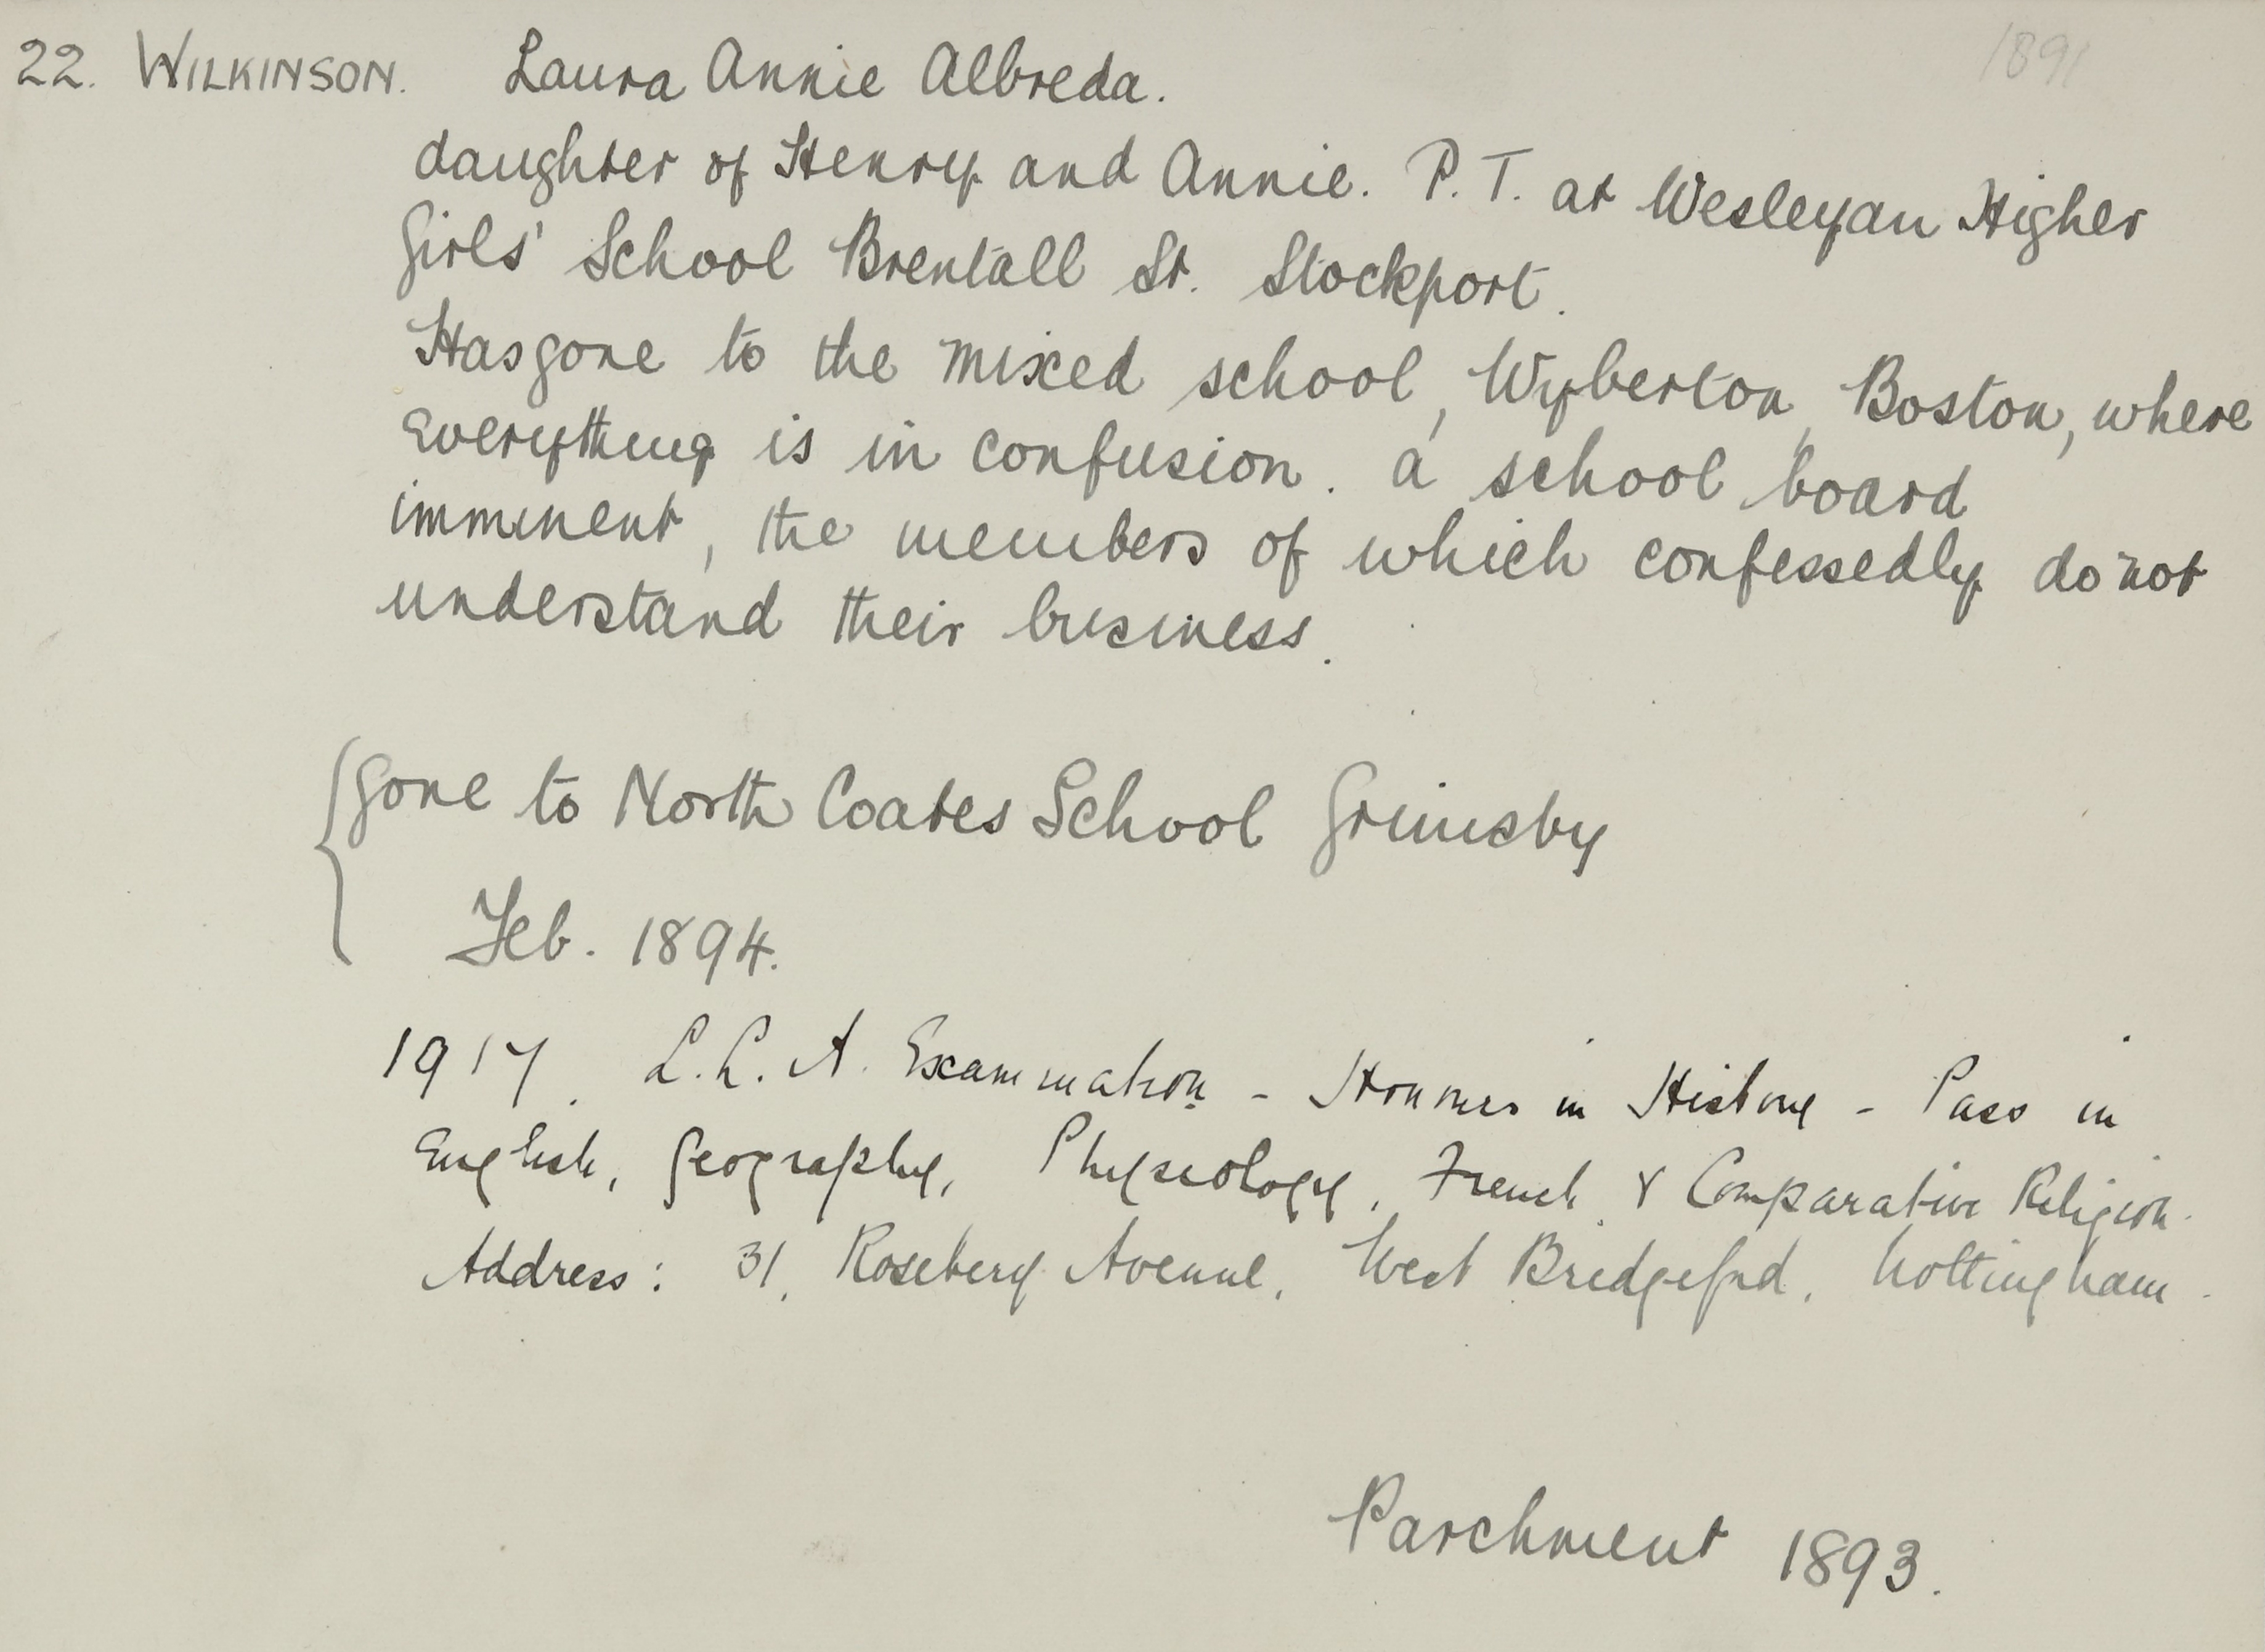 22. WILKINSON. Laura Annie Albreda. 1891
daughter of Henry and Annie. P.T. at Wesleyan Higher
Girls' School Brentall St. Stockport.
Has gone to the mixed school, Wyberton, Boston, where
Everything is in confusion. a school board
imminent, the members of which confessedly do not
understand their business.
Gone to North Coates School Grimsby
Feb. 1894.
1917. L.L.A. Examination - Honours in History - Pass in
English, Geography, Physiology, French & Comparative Religion.
Address: 31, Rosebery Avenue, West Bridgeford, Nottingham.
Parchment 1893.